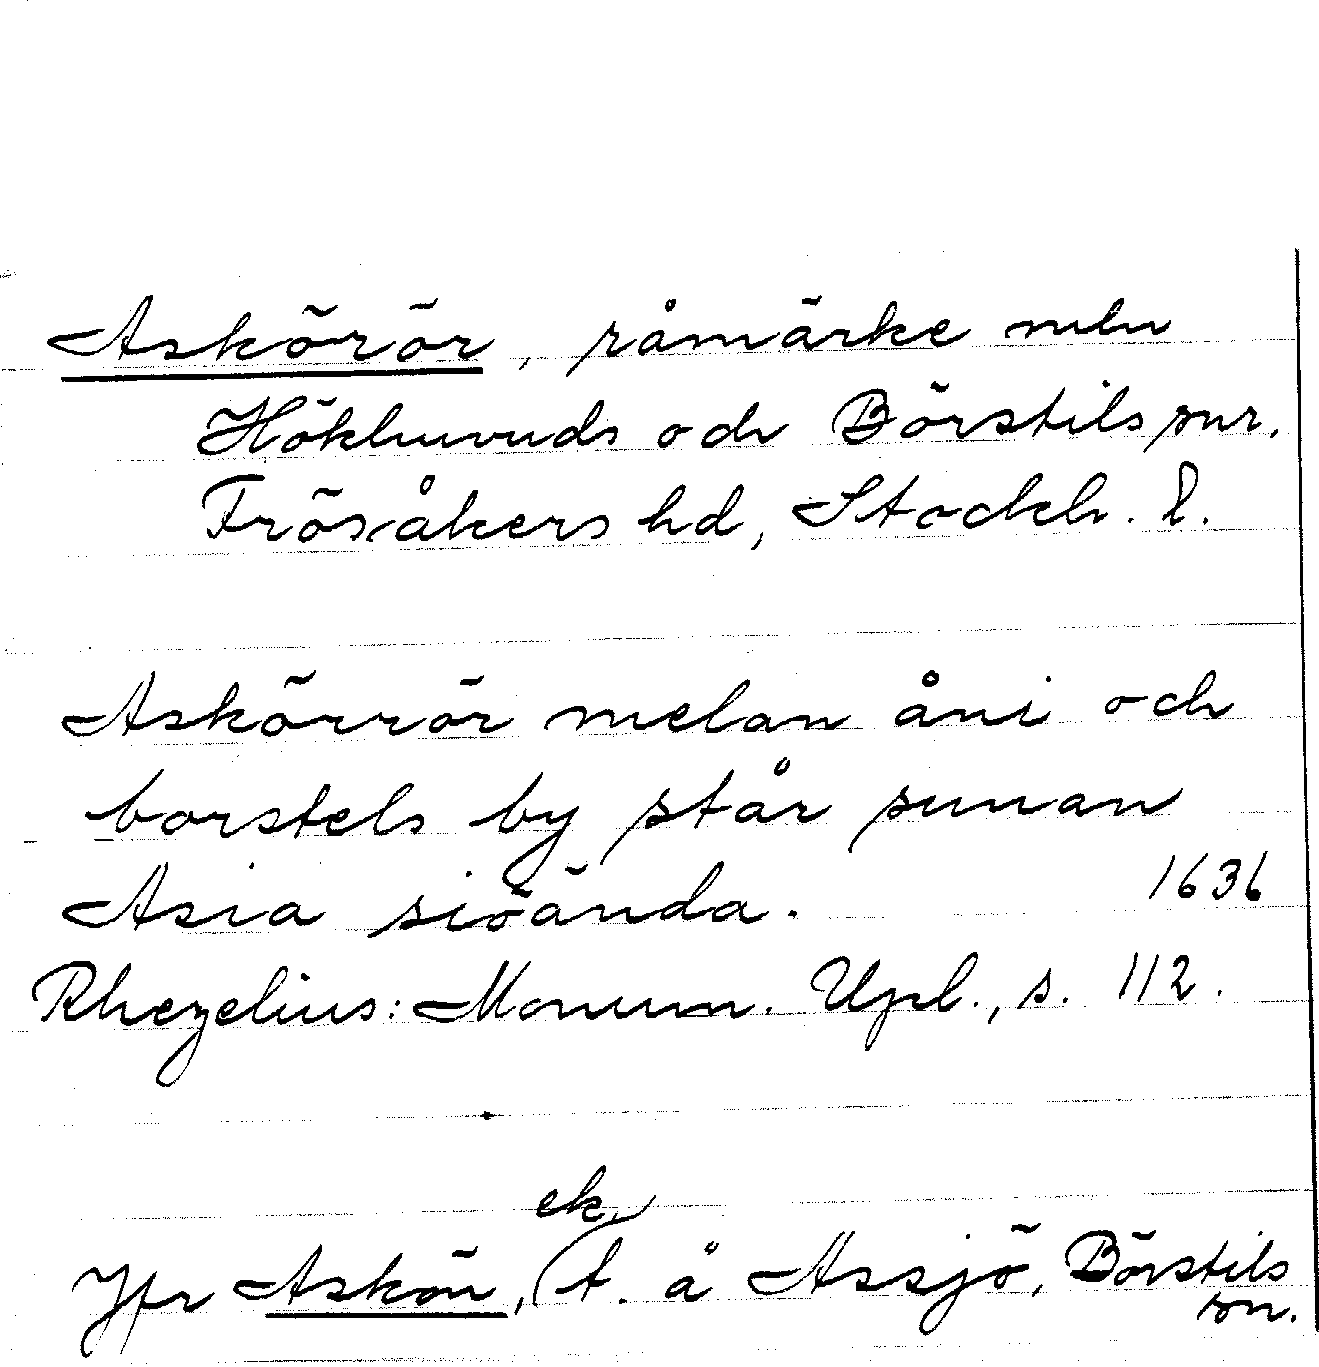 Askörör, råmärke mln
Hökhuvuds och Börstils snr.
Frösåkers hd, Stockh. l.
Askörrör melan åni och
borstels by står sunan
Asia siöända. 1636
Rhezelius: Monum. Upl., s. 112.
ek,
Jfr Askön, t. å Assjö, Börstils
sn.